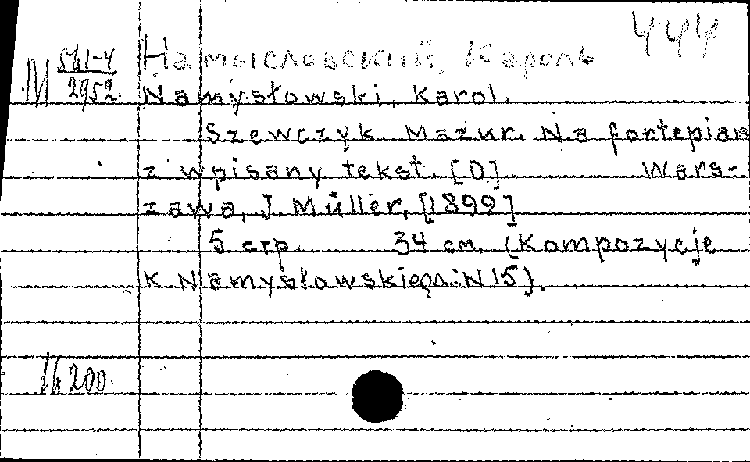 444
М 561-4
2952
Намысловский, Кароль
Namysłowski, Karol.
Szewczyk. Mazur. Na fortepian
z wpisany tekst. [O] Wars-
zawa, J. Müller, [1899]
5 стр. 34 см. (Kompozycje
K. Namysłowskiego. N 15).
16200